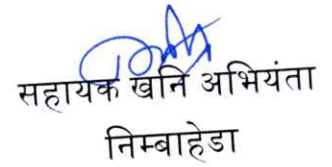 सहायक खनि अभियंता
निम्बाहेडा